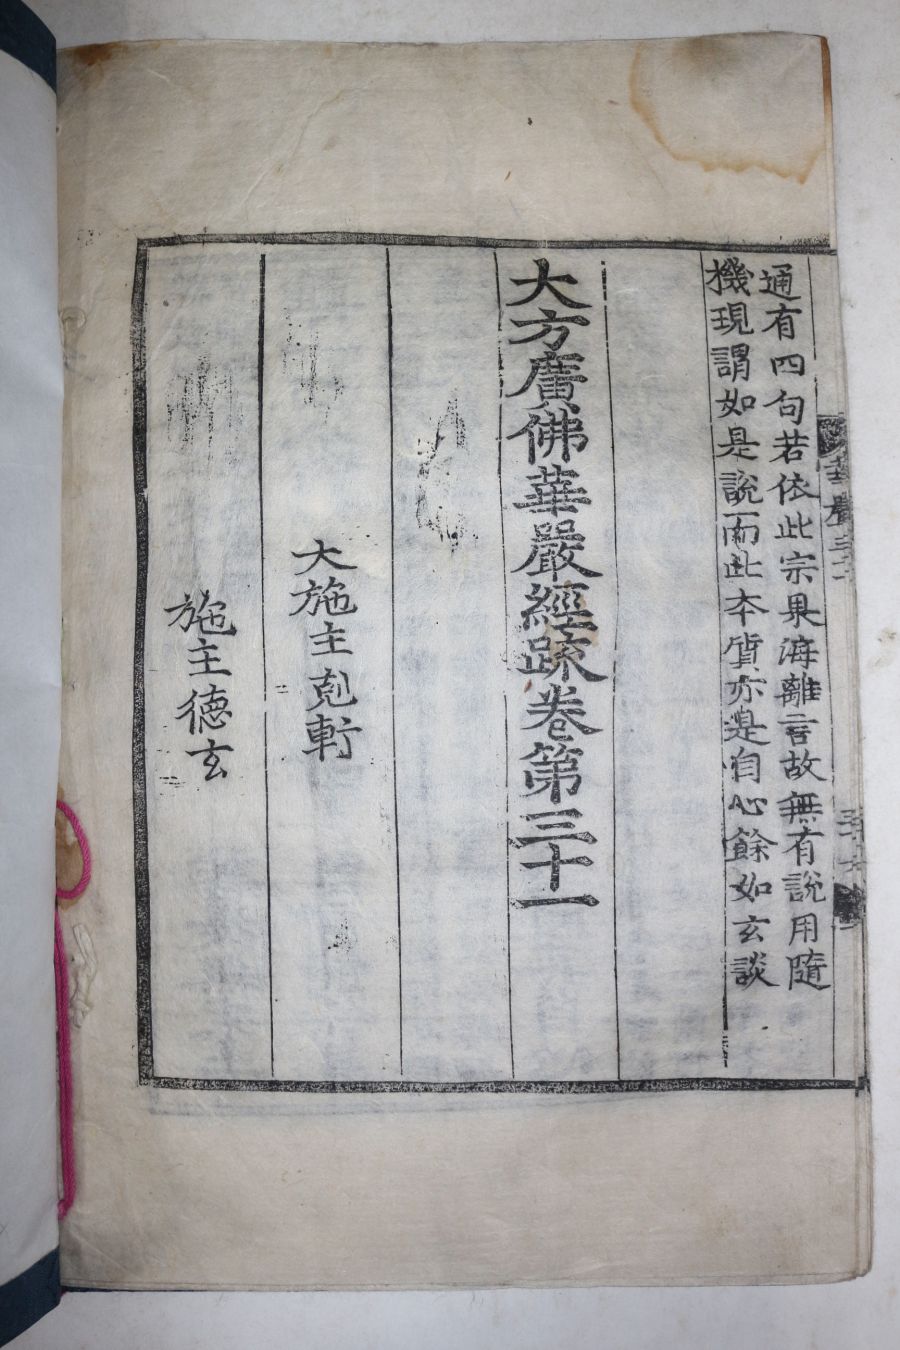 通有四句若依此宗果海離言故無有說用隨
機現謂如是說而此本質亦是自心餘如玄談
大方廣佛華嚴經疏卷第三十一
大施主剋軒
施主德玄